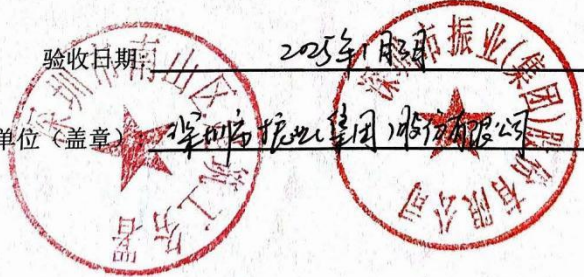 验收日期: 2025年1月3日
单位（盖章） 深圳市振业(集团)股份有限公司
深圳市南山区建筑工务署
深圳市振业(集团)股份有限公司